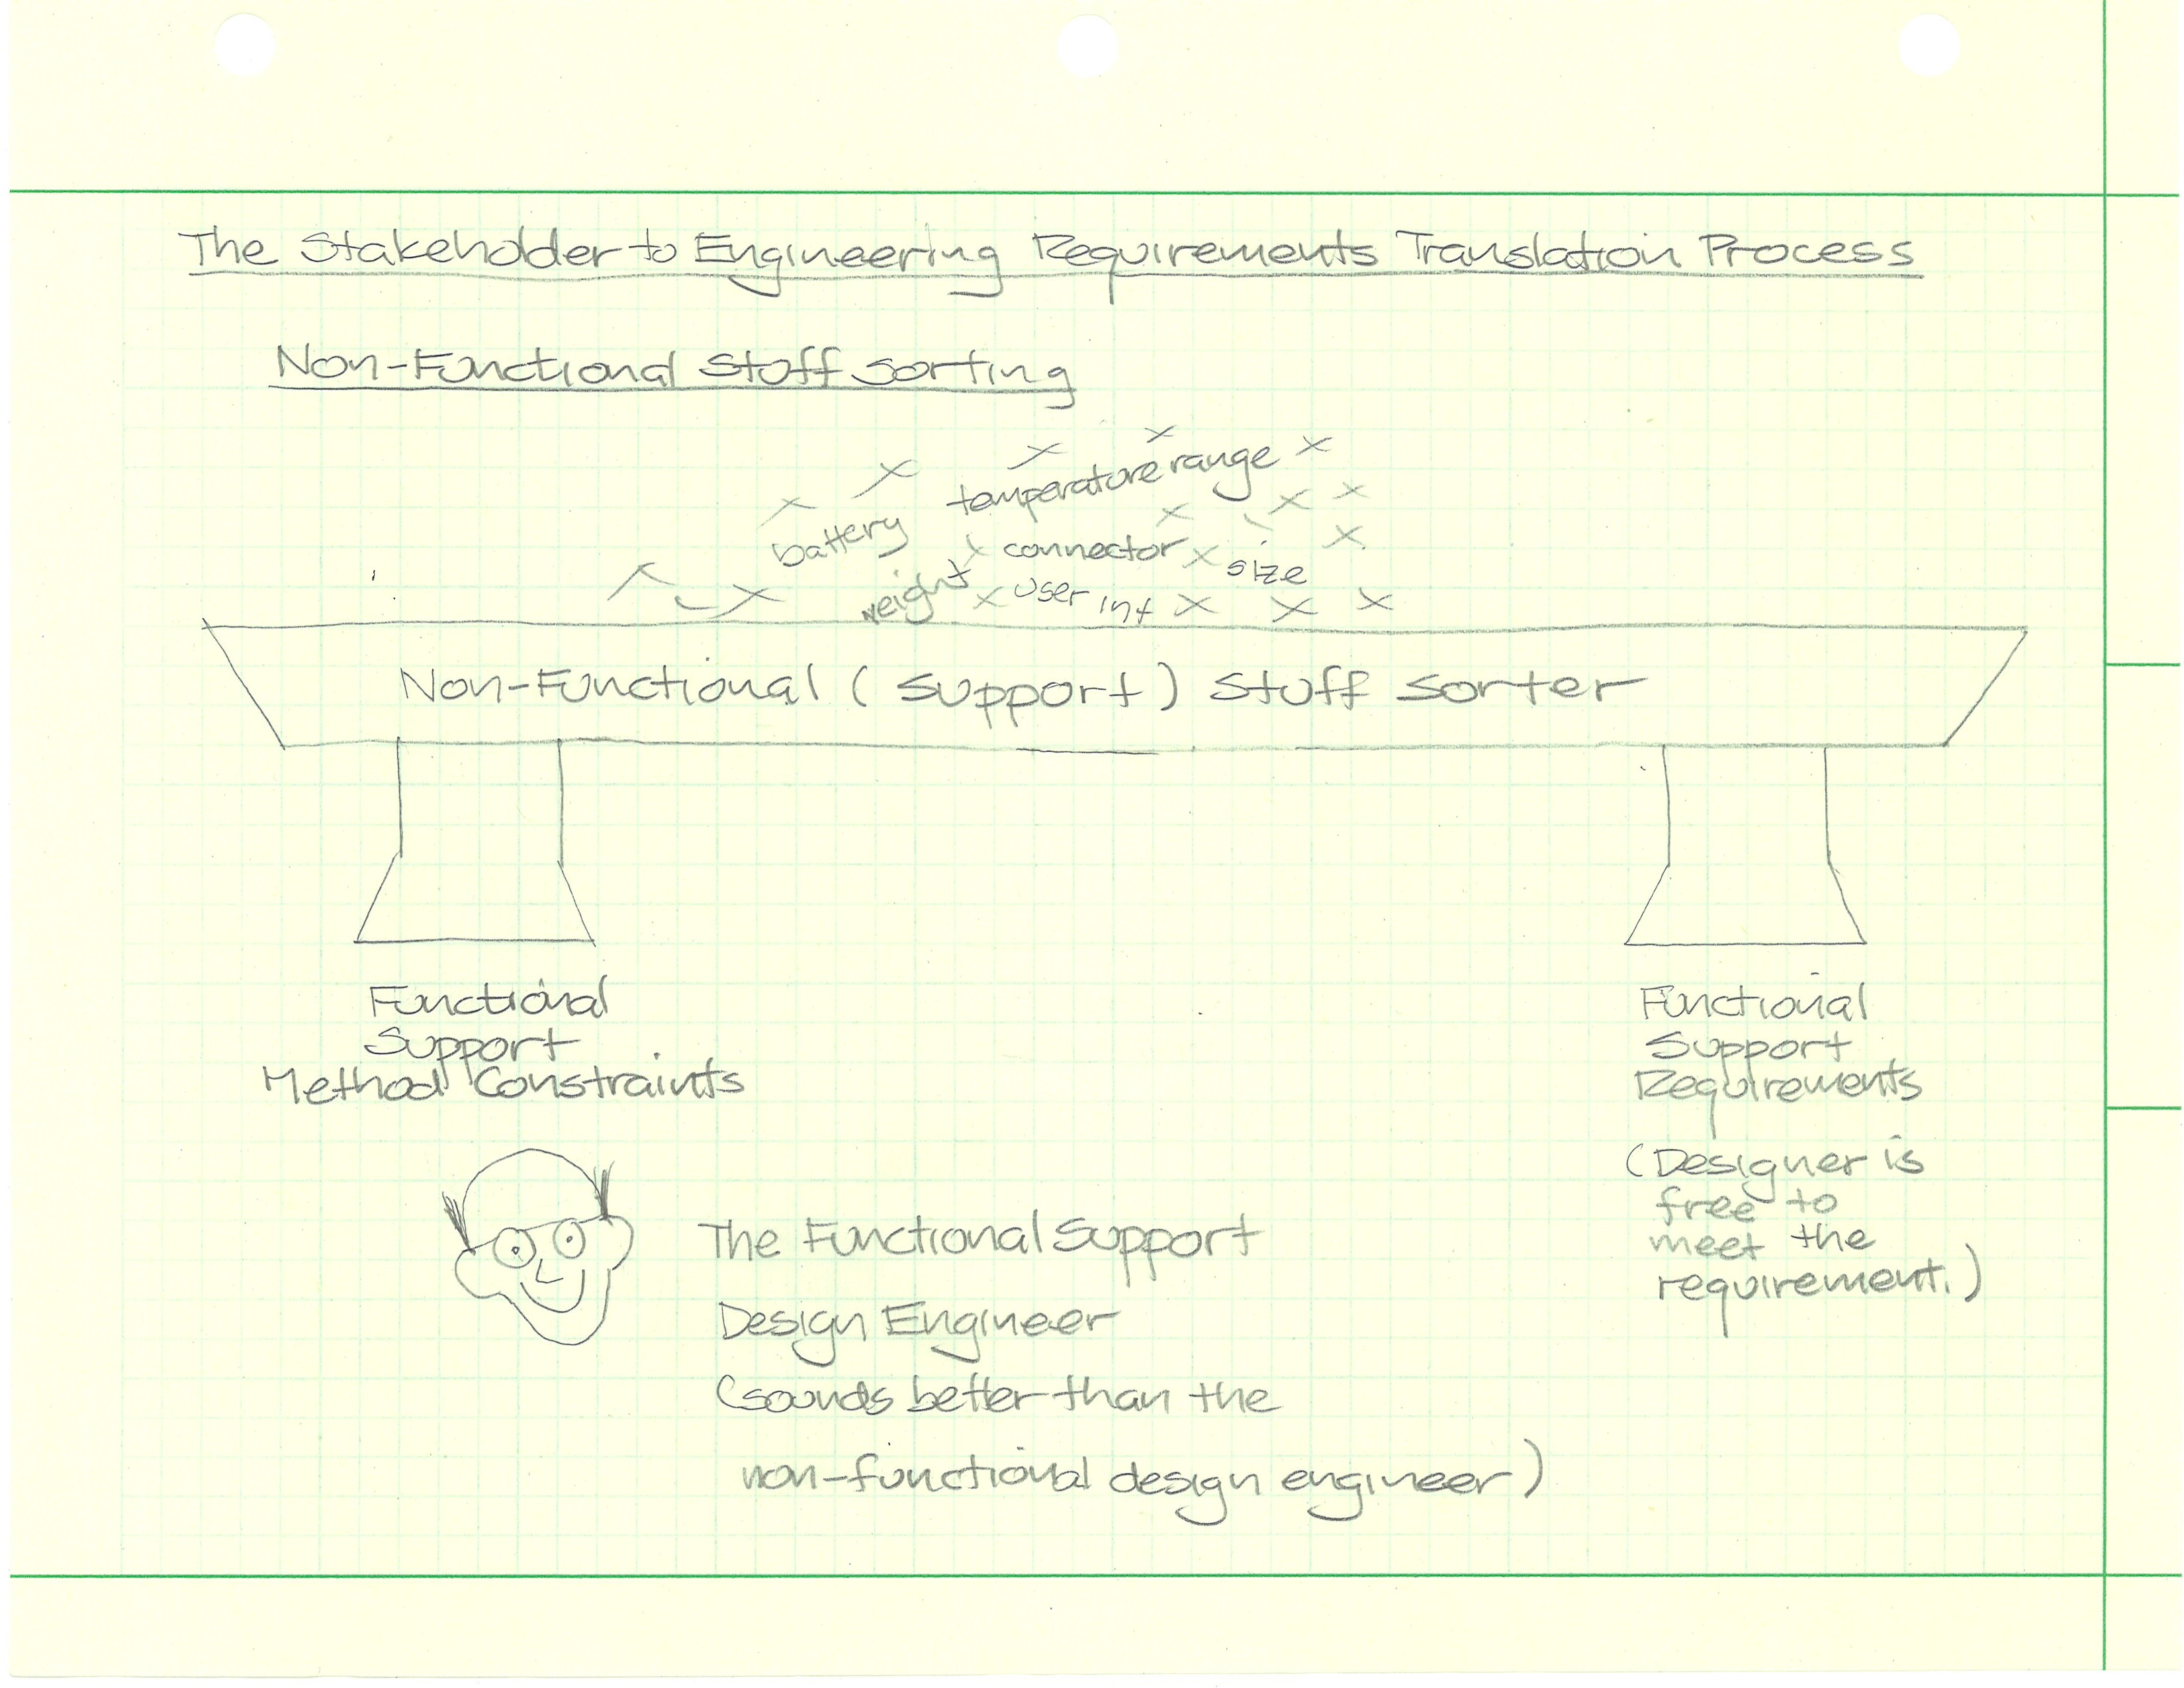 The Stakeholder to Engineering Requirements Translation Process
Non-Functional Stuff Sorting
temperature range
battery
connector
size
weight
user int
Non-Functional (Support) Stuff Sorter
Functional
Support
Method Constraints
Functional
Support
Requirements
(Designer is
free to
meet the
requirement.)
The Functional Support
Design Engineer
(sounds better than the
non-functional design engineer)